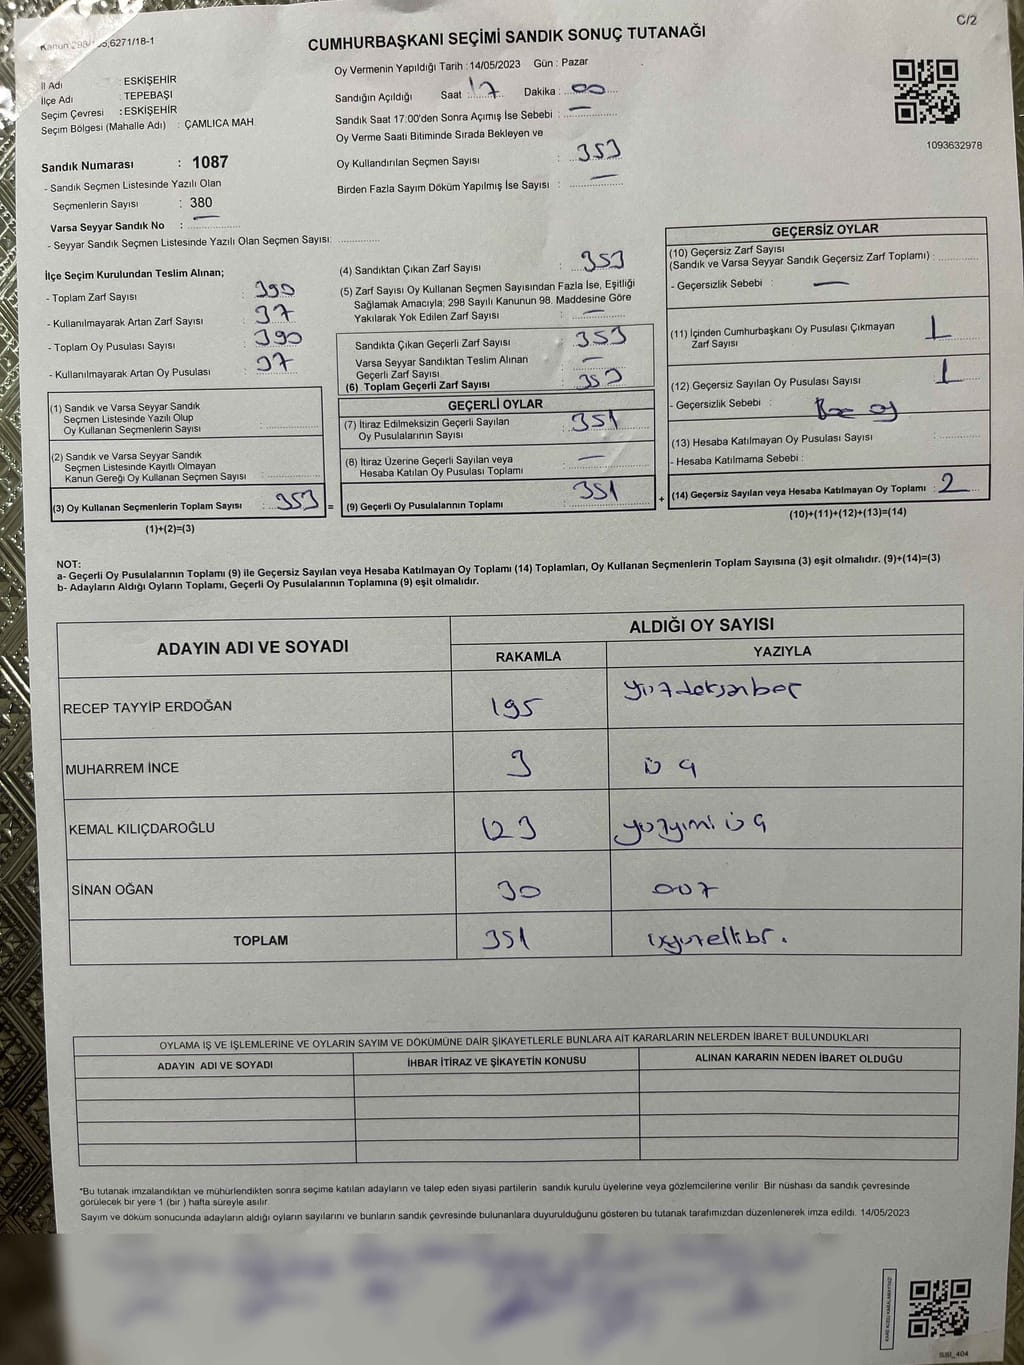 C/2
6271/18-1
CUMHURBAŞKANI SEÇİMİ SANDIK SONUÇ TUTANAĞI
İl Adı : ESKİŞEHİR
İlçe Adı : TEPEBAŞI
Seçim Çevresi : ESKİŞEHİR
Seçim Bölgesi (Mahalle Adı) : ÇAMLICA MAH.
Sandık Numarası : 1087
- Sandık Seçmen Listesinde Yazılı Olan
Seçmenlerin Sayısı : 380
Varsa Seyyar Sandık No : —
- Seyyar Sandık Seçmen Listesinde Yazılı Olan Seçmen Sayısı:
Oy Vermenin Yapıldığı Tarih :14/05/2023 Gün : Pazar
Sandığın Açıldığı Saat : 17 Dakika : 00
Sandık Saat 17:00'den Sonra Açımış İse Sebebi : —
Oy Verme Saati Bitiminde Sırada Bekleyen ve
Oy Kullandırılan Seçmen Sayısı : 353
Birden Fazla Sayım Döküm Yapılmış İse Sayısı : —
1093632978
İlçe Seçim Kurulundan Teslim Alınan;
- Toplam Zarf Sayısı : 390
- Kullanılmayarak Artan Zarf Sayısı : 37
- Toplam Oy Pusulası Sayısı : 390
- Kullanılmayarak Artan Oy Pusulası : 37
(1) Sandık ve Varsa Seyyar Sandık
Seçmen Listesinde Yazılı Olup
Oy Kullanan Seçmenlerin Sayısı :
(2) Sandık ve Varsa Seyyar Sandık
Seçmen Listesinde Kayıtlı Olmayan
Kanun Gereği Oy Kullanan Seçmen Sayısı :
(3) Oy Kullanan Seçmenlerin Toplam Sayısı : 353 =
(1)+(2)=(3)
(4) Sandıktan Çıkan Zarf Sayısı : 353
(5) Zarf Sayısı Oy Kullanan Seçmen Sayısından Fazla İse, Eşitliği
Sağlamak Amacıyla; 298 Sayılı Kanunun 98. Maddesine Göre
Yakılarak Yok Edilen Zarf Sayısı : —
Sandıkta Çıkan Geçerli Zarf Sayısı : 353
Varsa Seyyar Sandıktan Teslim Alınan
Geçerli Zarf Sayısı : —
(6) Toplam Geçerli Zarf Sayısı : 353
GEÇERLİ OYLAR
(7) İtiraz Edilmeksizin Geçerli Sayılan
Oy Pusulalarının Sayısı : 351
(8) İtiraz Üzerine Geçerli Sayılan veya
Hesaba Katılan Oy Pusulası Toplamı : —
(9) Geçerli Oy Pusulalarının Toplamı : 351 +
GEÇERSİZ OYLAR
(10) Geçersiz Zarf Sayısı
(Sandık ve Varsa Seyyar Sandık Geçersiz Zarf Toplamı) :
- Geçersizlik Sebebi : —
(11) İçinden Cumhurbaşkanı Oy Pusulası Çıkmayan
Zarf Sayısı : 1
(12) Geçersiz Sayılan Oy Pusulası Sayısı : 1
- Geçersizlik Sebebi : oy
(13) Hesaba Katılmayan Oy Pusulası Sayısı :
- Hesaba Katılmama Sebebi :
(14) Geçersiz Sayılan veya Hesaba Katılmayan Oy Toplamı : 2
(10)+(11)+(12)+(13)=(14)
NOT:
a- Geçerli Oy Pusulalarının Toplamı (9) ile Geçersiz Sayılan veya Hesaba Katılmayan Oy Toplamı (14) Toplamları, Oy Kullanan Seçmenlerin Toplam Sayısına (3) eşit olmalıdır. (9)+(14)=(3)
b- Adayların Aldığı Oyların Toplamı, Geçerli Oy Pusulalarının Toplamına (9) eşit olmalıdır.
ADAYIN ADI VE SOYADI
ALDIĞI OY SAYISI
RAKAMLA YAZIYLA
RECEP TAYYİP ERDOĞAN 195 yüzdoksanbeş
MUHARREM İNCE 3 üç
KEMAL KILIÇDAROĞLU 123 yüzyirmi üç
SİNAN OĞAN 30 otuz
TOPLAM 351 üçyüzellibir.
OYLAMA İŞ VE İŞLEMLERİNE VE OYLARIN SAYIM VE DÖKÜMÜNE DAİR ŞİKAYETLERLE BUNLARA AİT KARARLARIN NELERDEN İBARET BULUNDUKLARI
ADAYIN ADI VE SOYADI İHBAR İTİRAZ VE ŞİKAYETİN KONUSU ALINAN KARARIN NEDEN İBARET OLDUĞU
*Bu tutanak imzalandıktan ve mühürlendikten sonra seçime katılan adayların ve talep eden siyasi partilerin sandık kurulu üyelerine veya gözlemcilerine verilir. Bir nüshası da sandık çevresinde
görülecek bir yere 1 (bir ) hafta süreyle asılır.
Sayım ve döküm sonucunda adayların aldığı oyların sayılarını ve bunların sandık çevresinde bulunanlara duyurulduğunu gösteren bu tutanak tarafımızdan düzenlenerek imza edildi. 14/05/2023